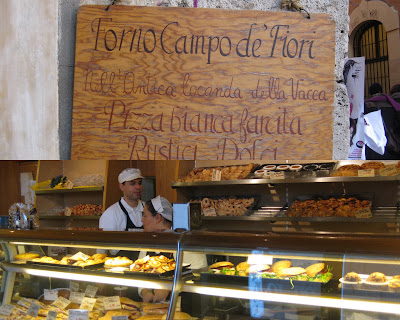 Forno Campo de' Fiori
Nell' Antica locanda della Vacca
Pizza bianca farcita
Rustici Dolci